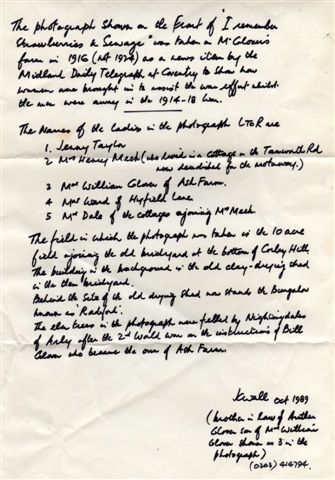 The photograph shown on the front of "I remember
Strawberries & Sewage" was taken on Mr Glovers
farm in 1916 (not 1974) as a news item by the
Midland Daily Telegraph at Coventry to show how
women were brought in to assist the war effort whilst
the men were away in the 1914-18 war.
The Names of the Ladies in the photograph LTOR are
1. Jenny Taylor
2 Mrs Henry Mech (who lived in a cottage on the Tamworth Rd
now demolished for the motorway.)
3 Mrs William Glover of Ash Farm.
4 Mrs Ward of Highfield Lane
5 Mrs Dale of the cottages adjoining Mrs Mech
The field in which the photograph was taken is the 10 acre
field adjoining the old brickyard at the bottom of Corley Hill
The building in the background is the old clay-drying shed
in the then brickyard.
Behind the site of the old drying shed now stands the Bungalow
known as Radford.
The elm trees in the photograph were felled by Nightingales
of Arley after the 2nd World war on the instructions of Bill
Glover who became the owner of Ash Farm.
Oct 1989
(brother in law of Arthur
Glover son of Mrs William
Glover shown as 3 in the
photograph)
(0203) 414794.